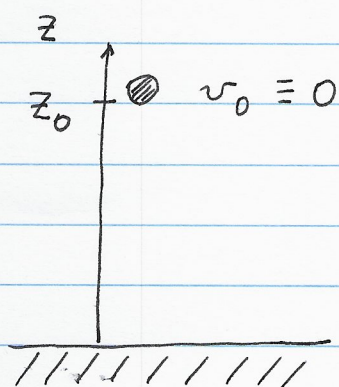 z
z₀ v₀ ≡ 0